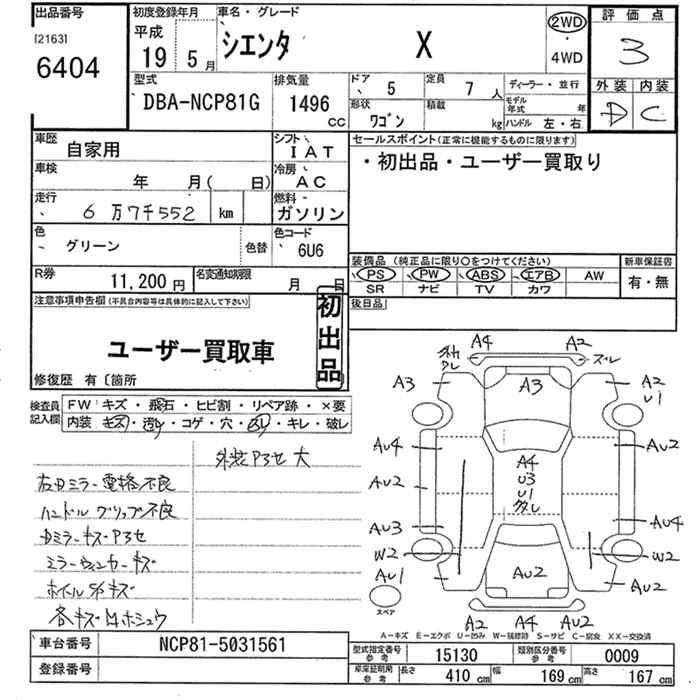 出品番号
[2163]
6404
初度登録年月
平成
19 5月
車名・グレード
シエンタ X
2WD
・
4WD
評価点
3
外装 内装
D C
型式
DBA-NCP81G
排気量
1496
CC
ドア 5
定員 7 人
ディーラー・並行
形状
ワゴン
積載
kg
モデル年式 年
ハンドル 左・右
車歴 自家用
シフト
IAT
車検 年 月( 日)
冷房
AC
走行 6万7千552 km
燃料
ガソリン
色 グリーン
色替
色コード
6U6
R券 11,200円
名変通知期限 月 日
セールスポイント(正常に機能するものに限ります)
・初出品・ユーザー買取り
装備品 (純正品に限り〇をつけてください)
PS PW ABS エアB AW
SR ナビ TV カワ
新車保証書
有・無
後日品
注意事項申告欄(不具合内容等は具体的に記入して下さい)
初出品
ユーザー買取車
修復歴 有〔箇所
検査員
記入欄
FW キズ・飛石・ヒビ割・リペア跡・×要
内装 キズ・汚レ・コゲ・穴・スレ・キレ・破レ
外装アセ大
左Dミラー電格不良
ハンドルグリップ不良
Dミラーキズアセ
ミラーウィンカーキズ
ホイルS/Pキズ
各キズ凹ホシュウ
A4
A2
ズレ
A3
A3
A2
U1
AU4
AU2
A4
U3
U1
AU2
AU3
AU4
W2
W2
AU1
AU2
AU2
スペア
A2
A4
AU2
A-キズ E-エクボ U-凹み W-補修跡 S-サビ C-腐食 XX-交換済
車台番号 NCP81-5031561
登録番号
型式指定番号
参考
15130
類別区分番号
参考
0009
車庫証明用
参考
長さ 410 cm
幅 169 cm
高さ 167 cm